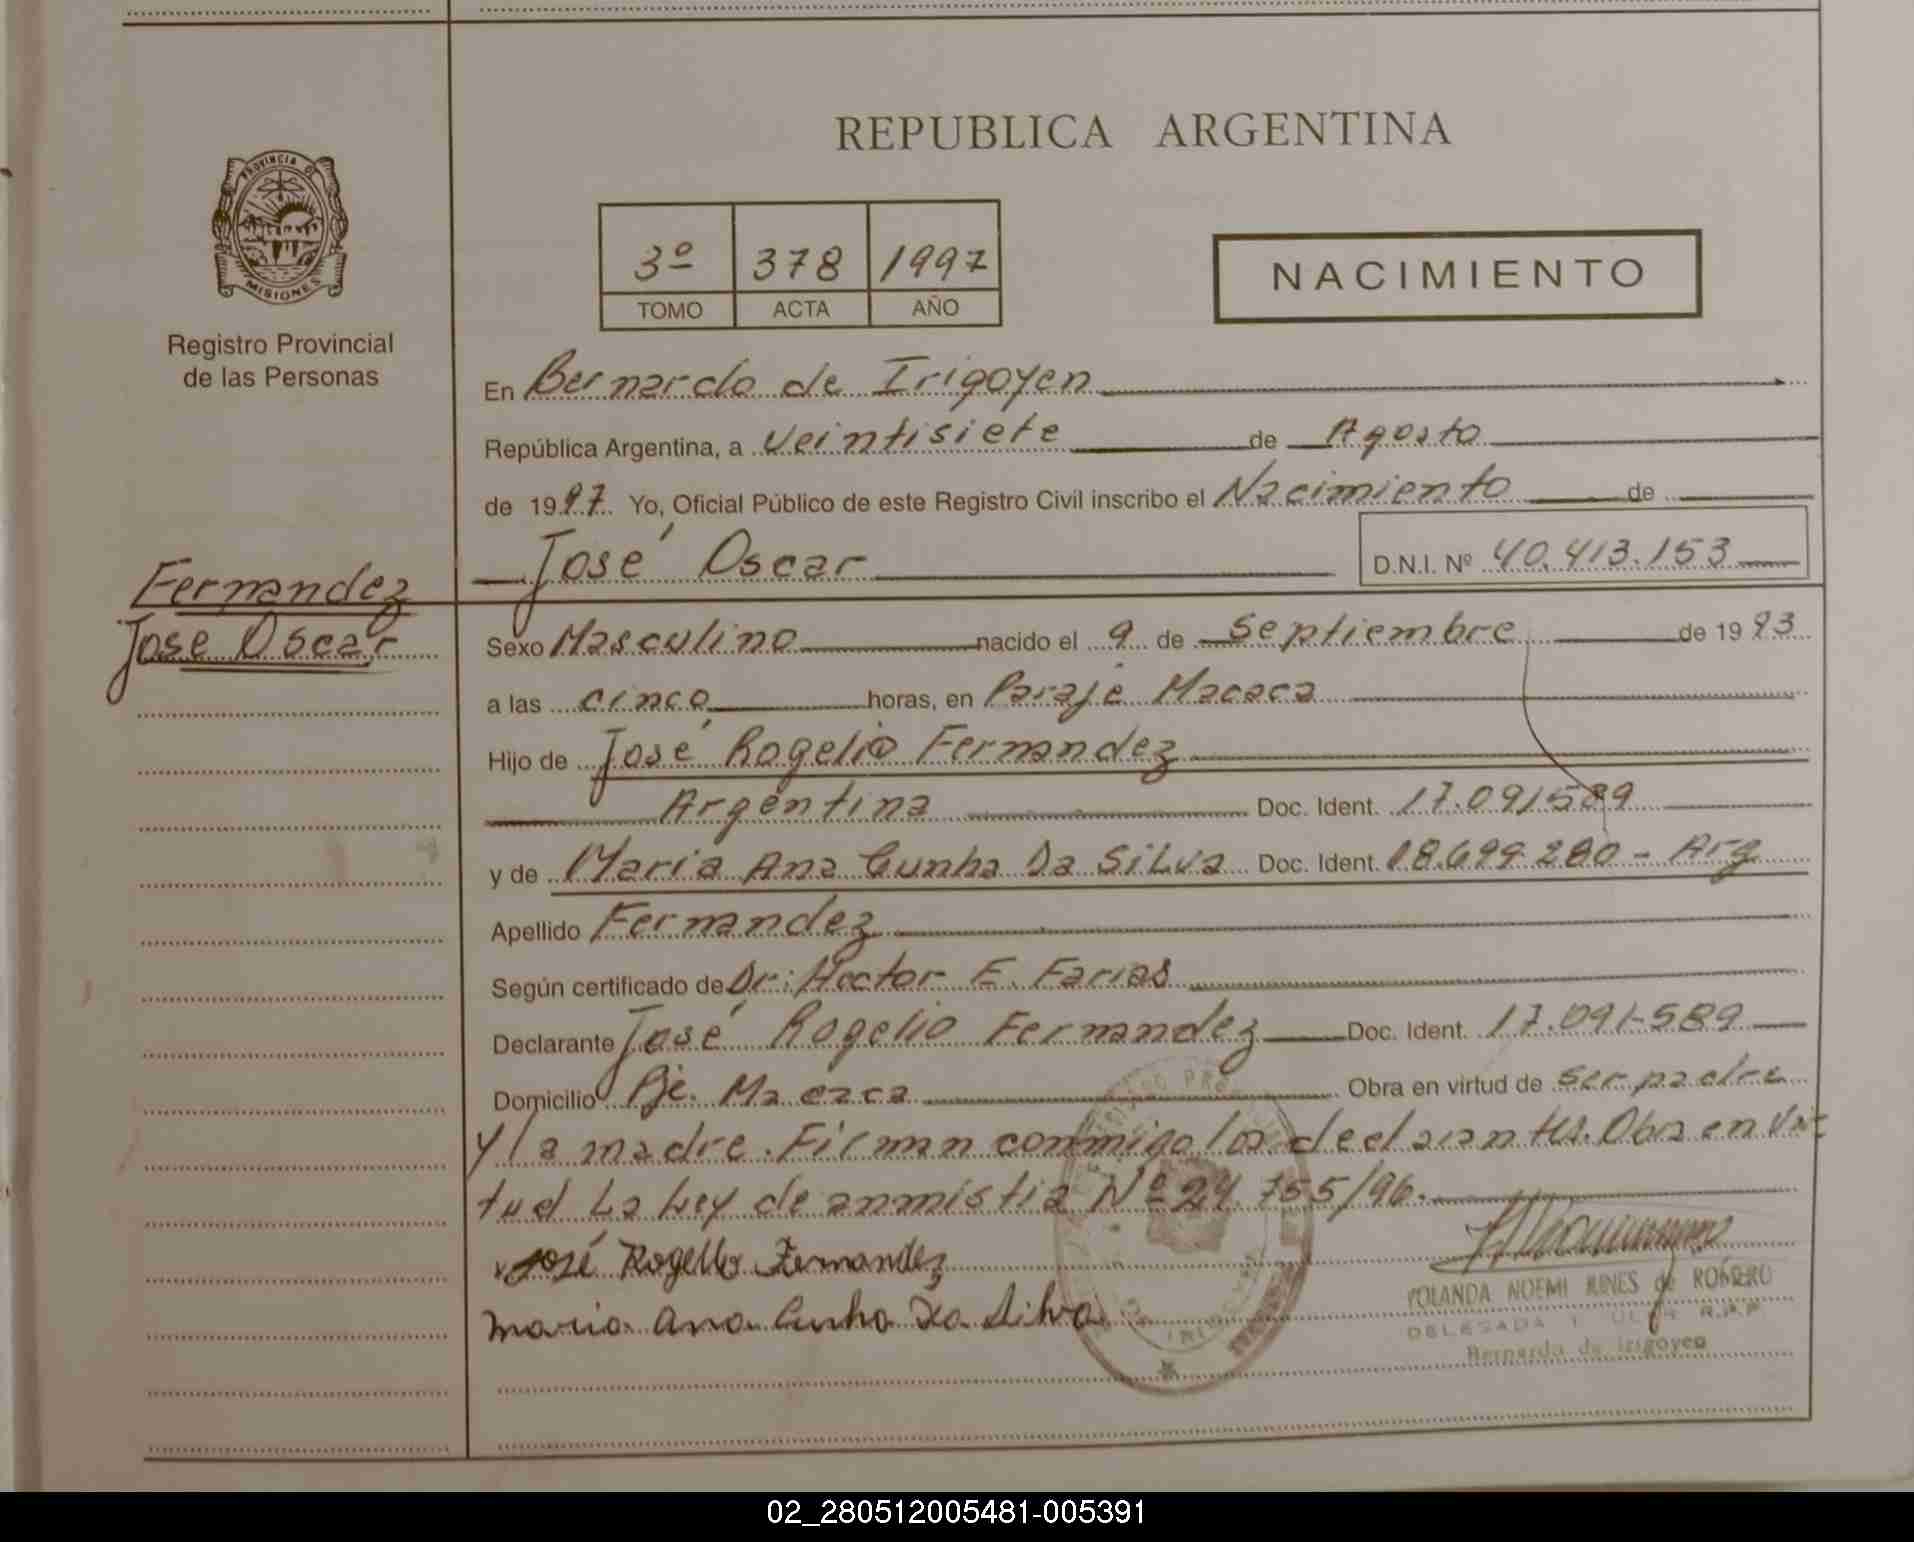 REPUBLICA ARGENTINA
PROVINCIA DE
MISIONES
Registro Provincial
de las Personas
3º 378 1997
TOMO ACTA AÑO
NACIMIENTO
En Bernardo de Irigoyen
República Argentina, a veintisiete de Agosto
de 1997 Yo, Oficial Público de este Registro Civil inscribo el Nacimiento de
José Oscar D.N.I. Nº 40.413.153
Fernandez
Jose Oscar
Sexo Masculino nacido el 9 de Septiembre de 1993
a las cinco horas, en Paraje Macaca
Hijo de José Rogelio Fernandez
Argentina Doc. Ident. 17.091589
y de Maria Ana Cunha Da Silva Doc. Ident. 18.699.280 - Arg
Apellido Fernandez
Según certificado de Dr: Hector E. Farias
Declarante José Rogelio Fernandez Doc. Ident. 17.091-589
Domicilio Pje. Macaca Obra en virtud de ser padre
y la madre. Firman conmigo los declarantes. Obra en vir
tud La Ley de anmistia Nº 24.755/96.
José Rogelio Fernandez
Maria Ana Cunha Da Silva
YOLANDA NOEMI de ROMERO
DELEGADA R.P.P
Bernardo de Irigoyen
02_280512005481-005391